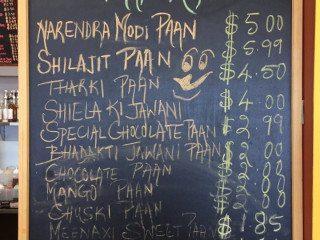 NARENDRA MODI PAAN $5.00
SHILAJIT PAAN $5.99
THARKI PAAN $4.50
SHIELA KI JAWANI $4.00
SPECIAL CHOCOLATE PAAN $2.99
BHADAKTI JWANI PAAN $2.00
CHOCOLATE PAAN $2.00
MANGO PAAN $2.00
CHUSKI PAAN
MEENAXI SWEET PAAN $1.85